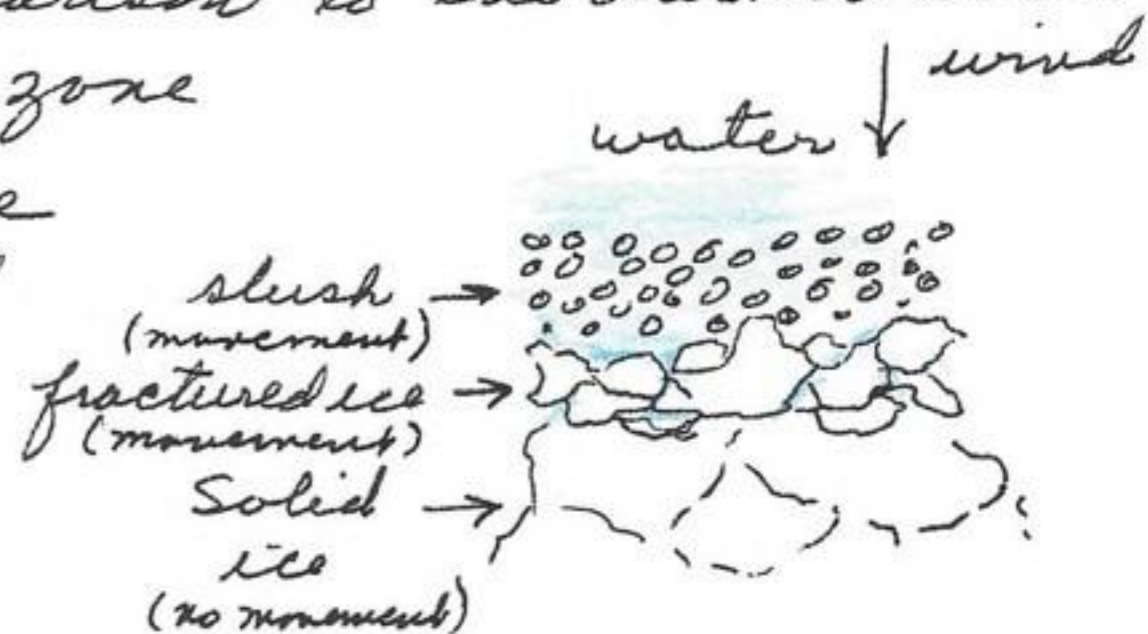 is
zone
wind
water
slush
(movement)
fractured ice
(movement)
Solid
ice
(no movement)